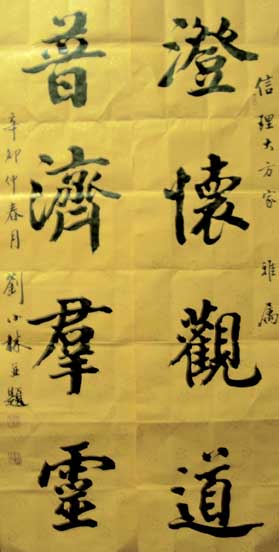 信理大方家雅屬
澄懷觀道
普濟羣靈
辛卯仲春月劉小林並題